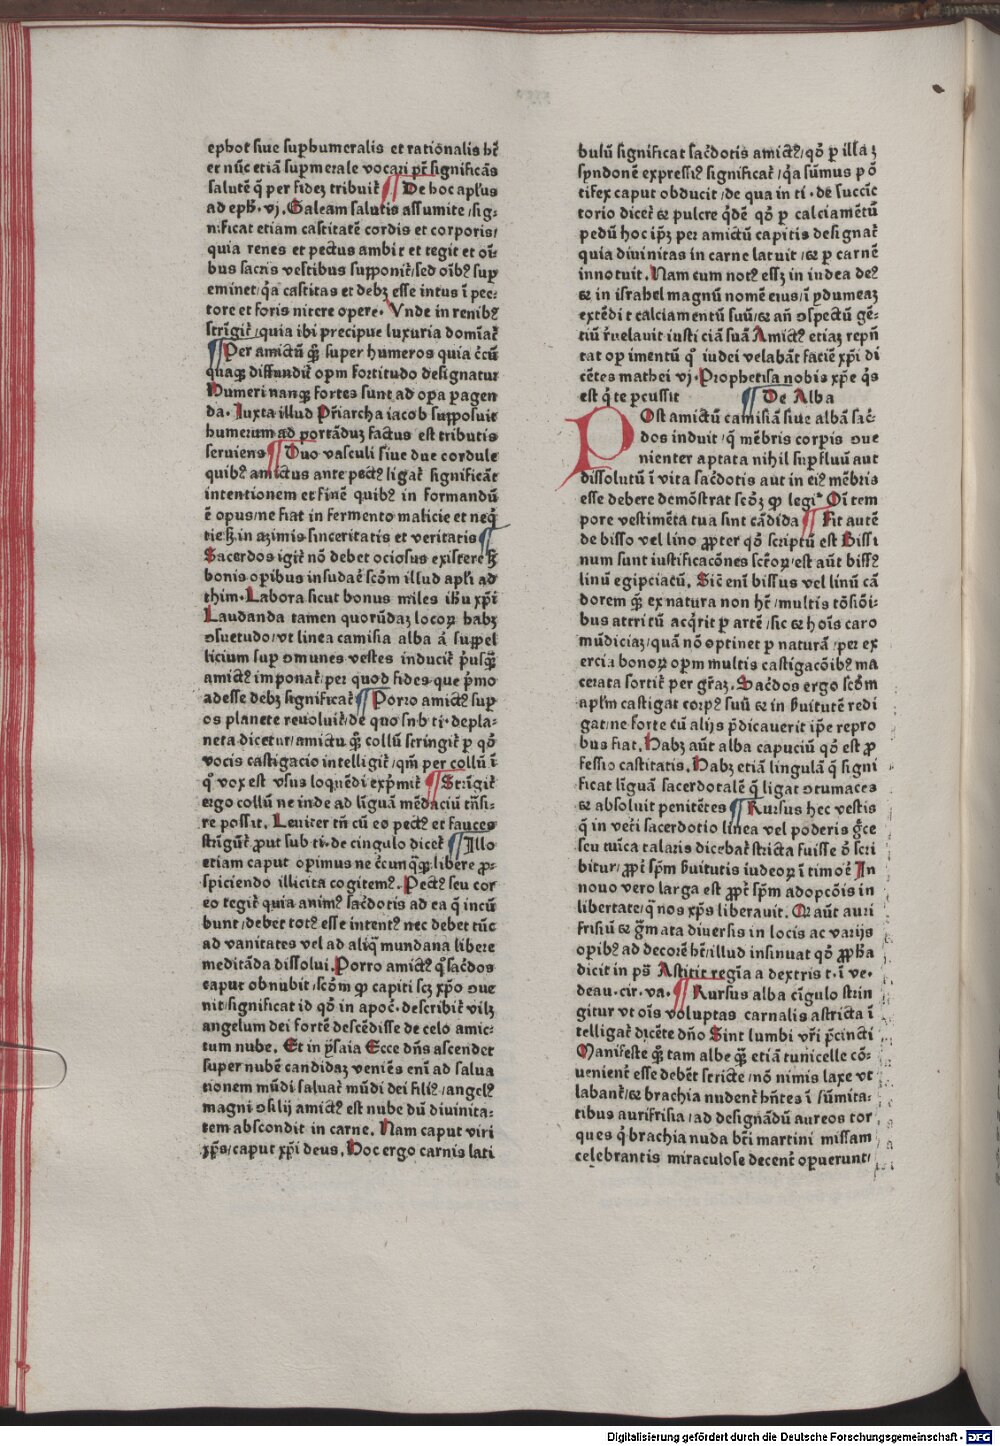 ephot siue suꝑhumeralis et rationalis hꝫ
et nūc etiā suꝑmerale vocari pꝫ significās
salutē q̄ per fideꝫ tribuit᷑ ¶ De hoc apl̓us
ad eph̓. vj. Galeam salutis assumite / sig-
nificat etiam castitatē cordis et corporis /
quia renes et pectus ambit et tegit et oī-
bus sacris vestibus supponit᷑ / sed oībꝰ suꝑ
eminet / q̇a castitas et debꝫ esse intus ī pec-
tore et foris nitere opere. Vnde in renibꝰ
strīgit᷑ / quia ibi precipue luxuria domīat᷑
¶ Per amictū q̄ꝫ super humeros quia c̓cū
quaqꝫ diffundit᷑ opm fortitudo designatur
Humeri nanqꝫ fortes sunt ad opa pagen
da. Iuxta illud Pr̄iarcha iacob supposuit
humerum ad portāduꝫ factus est tributis
seruiens ¶ Duo vasculi siue due cordule
quibꝰ amictus ante pectꝰ ligat᷑ significāt
intentionem et finē quibꝰ in formandū
ē opus / ne fiat in fermento malicie et neq̄
tie sꝫ in azimis sinceritatis et veritatis ¶
Sacerdos igit᷑ nō debet ociosus existere sꝫ
bonis oꝑibus insudat᷑ scd̓m illud apl̓i ad
thim. Labora sicut bonus miles ih̓u xp̄i
Laudanda tamen quorūdaꝫ locoꝝ habꝫ
ↄsuetudo / vt linea camisia alba á suppel
licium suꝑ ōmunes vestes inducit᷑ p̓usq̄ꝫ
amictꝰ imponat᷑ / per quod fides que p̓mo
adesse debꝫ significat᷑ ¶ Porro amictꝰ suꝑ
os planete reuoluit᷑ / de quo snb ti. de pla-
neta dicetur / amictu q̄ꝫ collū stringit᷑ ꝑ qō
vocis castigacio intelligit᷑ / qm̄ per collū ī
q̇ vox est vsus loquēdi exp̓mit᷑ ¶ Strīgit᷑
ergo collū ne inde ad līguā mēdaciū trāsi-
re possit. Leniter tn̄ cū eo pectꝰ et fauces
strīgūt᷑ ꝓut sub ti. de cingulo dicet᷑ ¶ Illo
etiam caput oꝑimus ne c̓cunq̄ꝫ libere ꝓ-
spiciendo illicita cogitemꝰ. Pectꝰ seu cor
eo tegit᷑ quia animꝰ sac̓dotis ad ea q̄ incū
bunt / debet totꝰ esse intentꝰ nec debet tūc
ad vanitates vel ad aliq̄ mundana libere
meditāda dissolui. Porro amictꝰ q̊ sac̓dos
caput obnubit / scd̓m qꝫ capiti scꝫ xp̄o ↄue
nit / significat id qō in apoc̄. describit᷑ vilꝫ
angelum dei fortē descēdisse de celo amic-
tum nube. Et in ysaia Ecce dn̄s ascendet
super nubē candidaꝫ veniēs enī ad salua
tionem mūdi saluat᷑ mūdi dei filiꝰ / angelꝰ
magni ↄsilij amictꝰ est nube dū diuinita-
tem abscondit in carne. Nam caput viri
xp̄s / caput xp̄i deus. Hoc ergo carnis lati
bulū significat sac̓dotis amictꝰ / qō ꝑ illaꝫ
syndonē expressiꝰ significat᷑ / q̇a sūmus pō
tifex caput obducit / de qua in ti. de succīc
torio dicet᷑ ⁊ pulcre q̇dē qō ꝑ calciamētū
pedū hoc ip̄ꝫ per amictū capitis designat᷑
quia diuinitas in carne latuit / ⁊ ꝑ carnē
innotuit. Nam cum notꝰ essꝫ in iudea deꝰ
⁊ in israhel magnū nomē eius / ī ydumeaꝫ
extēdit calciamentū suū / ⁊ añ ↄspectū gē-
tiū r̓uelauit iusticiā suā Amictꝰ etiaꝫ repn̄
tat oꝑimentū q̇ iudei velabāt faciē xp̄i di
cētes mathei vj. Prophetisa nobis xp̄e q̇s
est q̇ te ꝑcussit ¶ De Alba
Post amictū camisiā siue albā sac̓
dos induit / q̄ mēbris corpis ↄue
nienter aptata nihil suꝑfluū aut
dissolutū ī vita sac̓dotis aut in eiꝰ mēbris
esse debere demōstrat scd̓ꝫ qꝫ legi. Oī tem
pore vestimēta tua sint cādida ¶ Fit autē
de bisso vel lino ꝓpter qō scriptū est Bissi
num sunt iustificacōnes sc̄toꝝ / est aūt bissꝰ
linū egipciacū. Sic̄ enī bissus vel linū cā
dorem q̄ꝫ ex natura non hꝫ / multis tōsiōi-
bus attritū acq̇rit ꝑ artē / sic ⁊ hoīs caro
mūdiciaꝫ / quā nō optinet ꝑ naturā / per ex
ercia bonoꝝ opm multis castigacōibꝰ ma
cerata sortit᷑ per gr̄aꝫ. Sac̓dos ergo scd̓m
apl̓m castigat corpꝰ suū ⁊ in s̓uitutē redi
gat / ne forte cū alijs p̓dicauerit ip̓e repro
bus fiat. Habꝫ aūt alba capuciū qō est ꝓ
fessio castitatis. Habꝫ etiā lingulā q̄ signi
ficat līguā sacerdotalē q̄ ligat ↄtumaces
⁊ absoluit penitētes ¶ Rursus hec vestis
q̄ in vet̓i sacerdotio linea vel poderis gr̄ce
seu tuīca talaris dicebat᷑ stricta fuisse ō scri
bitur / ꝓpt̓ sp̄m s̓uitutis iudeoꝝ ī timoē̓ In
nouo vero larga est ꝓpt̓ sp̄m adopcōis in
libertate / q̄ nos xp̄s liberauit. Q aūt auri
frisiū ⁊ gr̄mata diuersis in locis ac varijs
oꝑibꝰ ad decorē hꝫ / illud insinuat qō ꝓph̓a
dicit in ps̄ Astitit regīa a dextris t. ī ve.
deau. cir. va. ¶ Rursus alba cīgulo strin
gitur vt oīs voluptas carnalis astricta ī
telligat᷑ dicēte dn̄o Sint lumbi vr̄i p̄cincti
Manifeste q̄ꝫ tam albe q̄ꝫ etiā tunicelle cō-
uenient᷑ esse debēt stricte / nō nimis laxe vt
labant᷑ / ⁊ brachia nudent᷑ hn̄tes ī sūmita-
tibus aurifrisia / ad designādū aureos tor
ques q̇ brachia nuda bt̄i martini missam
celebrantis miraculose decent᷑ oꝑuerunt /
Digitalisierung gefördert durch die Deutsche Forschungsgemeinschaft - DFG